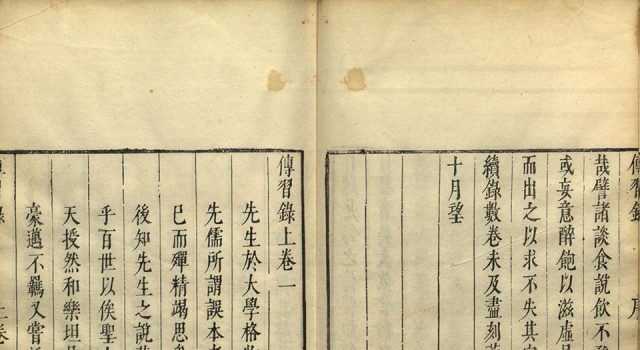 傳習錄 序
哉譬諸談食說飲不
或妄意醉飽以滋虛
而出之以求不失其
續錄數卷未及盡刻
十月望
傳習錄上卷一
先生於大學格
先儒所謂誤本
已而殫精竭思
後知先生之說
乎百世以俟聖
天授然和樂坦
豪邁不羈又嘗
上卷